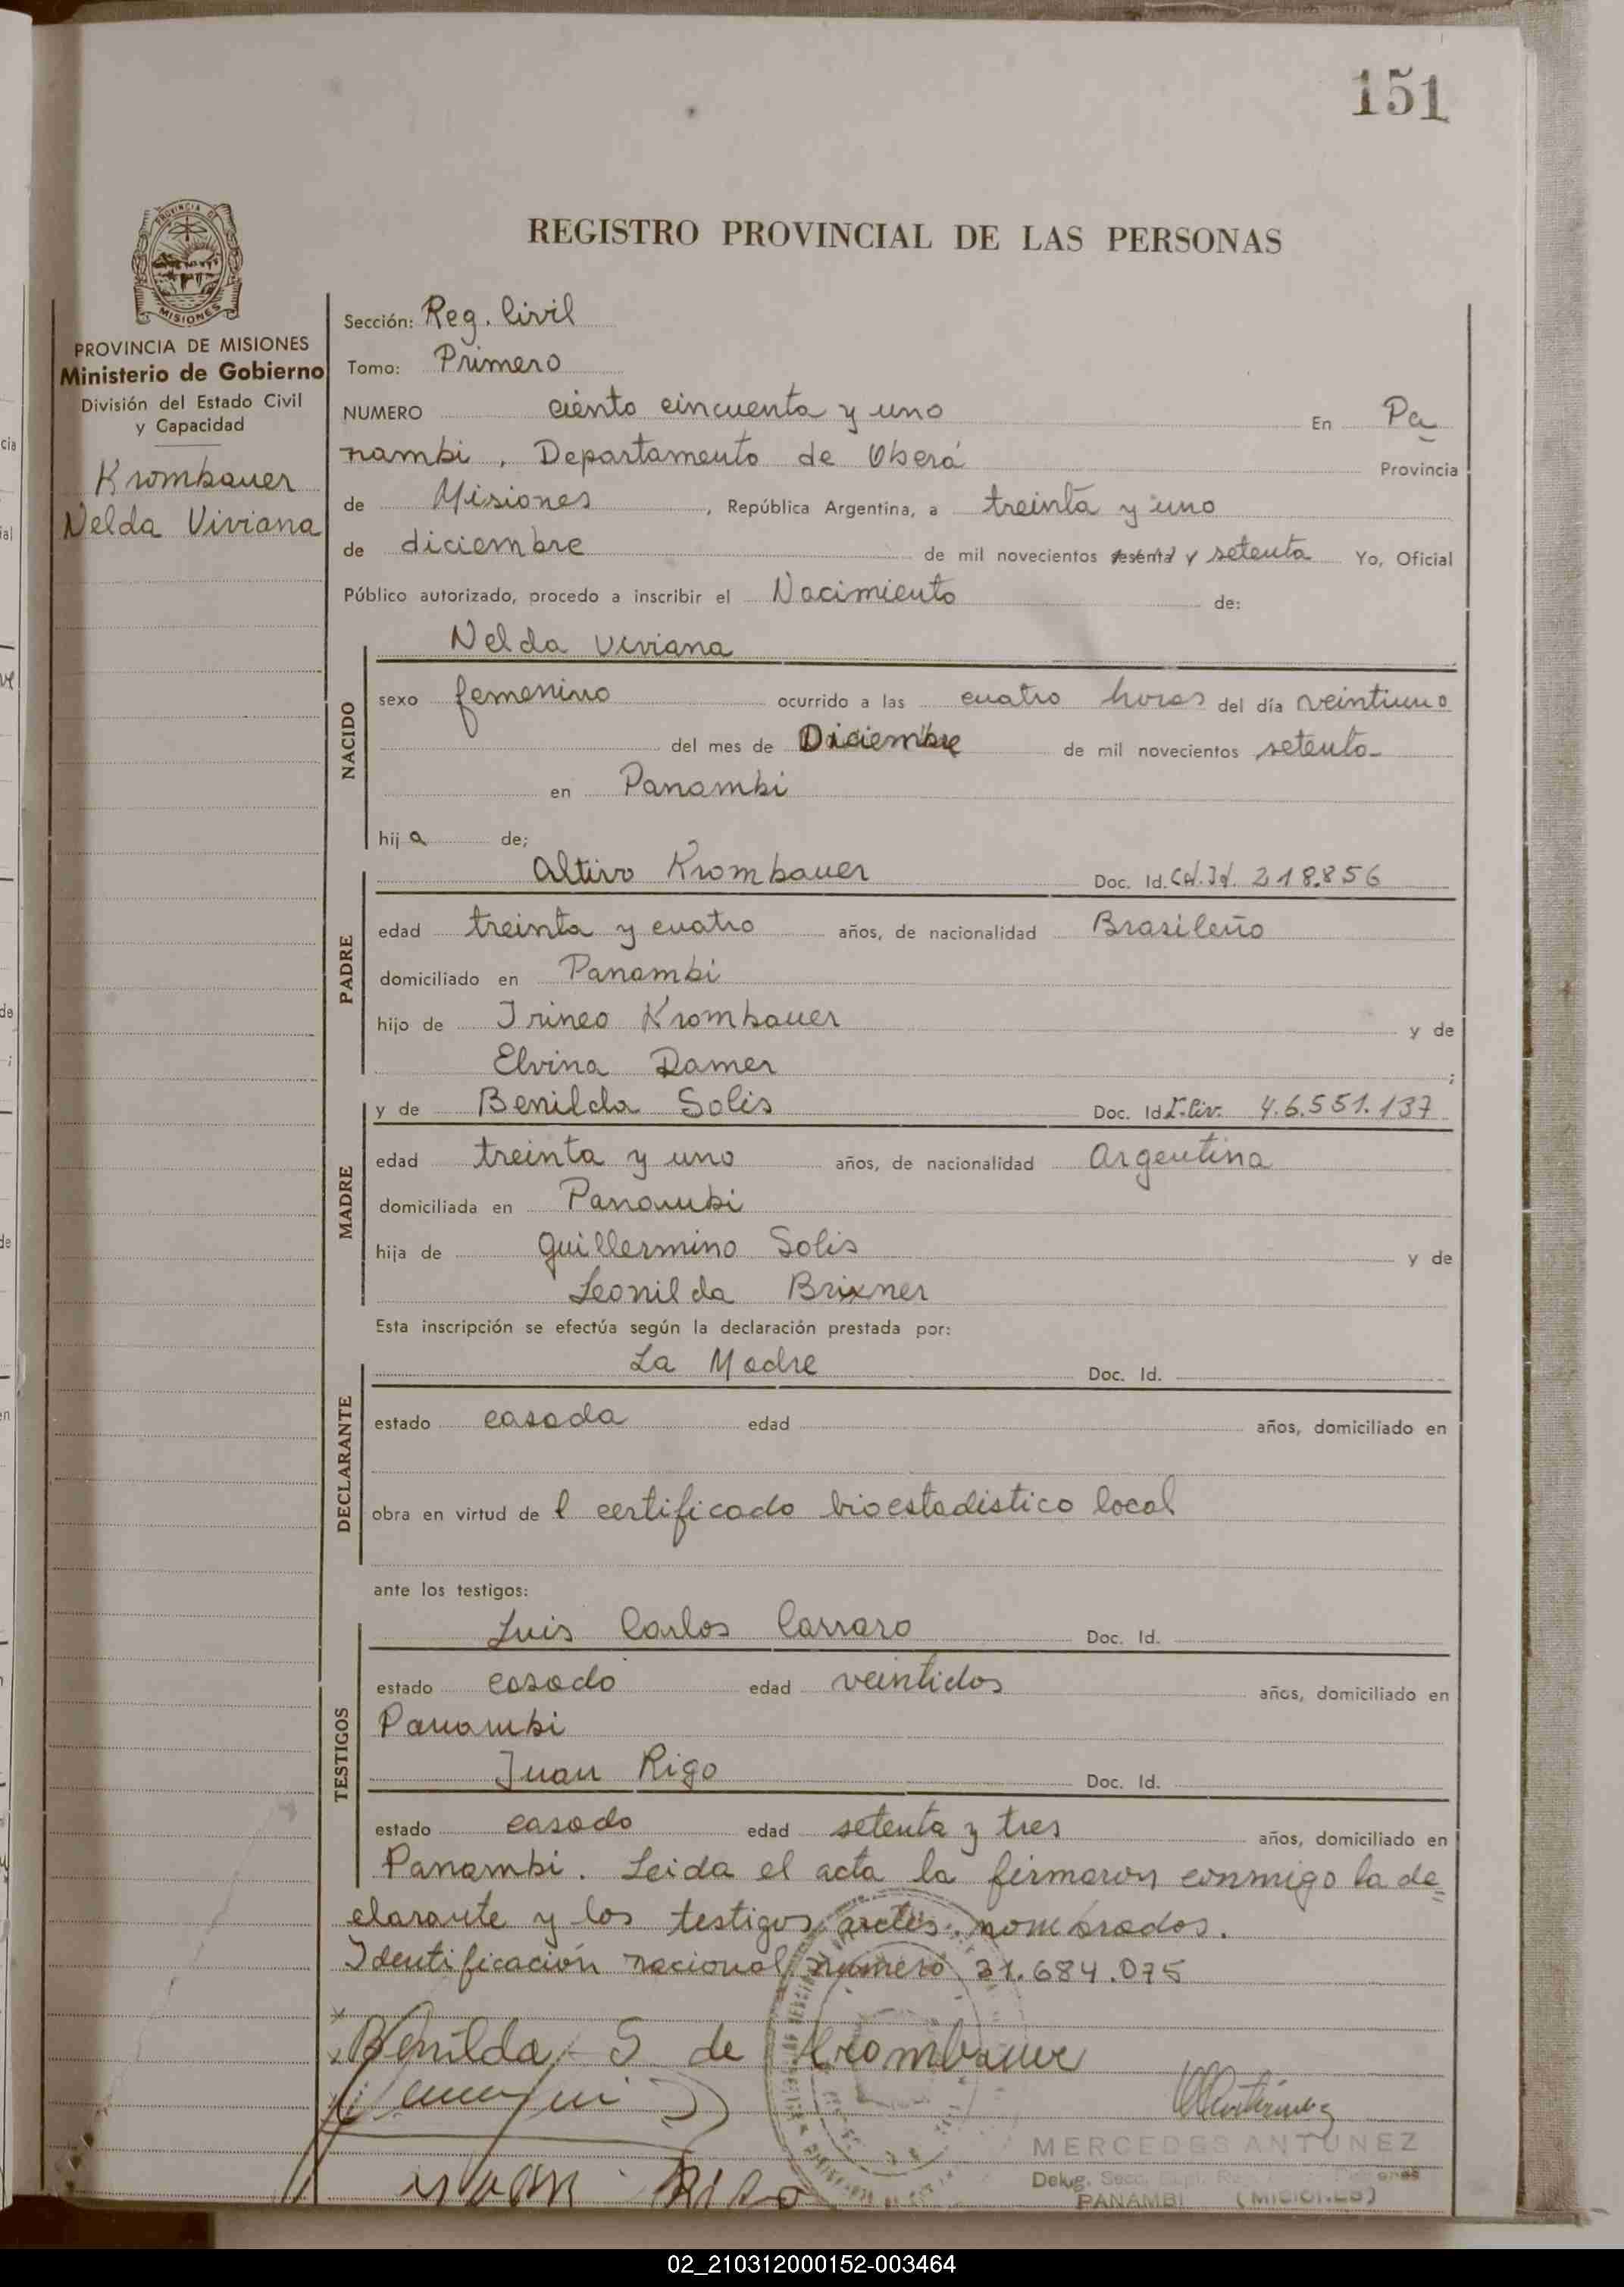 151
REGISTRO PROVINCIAL DE LAS PERSONAS
PROVINCIA DE
MISIONES
PROVINCIA DE MISIONES
Ministerio de Gobierno
División del Estado Civil
y Capacidad
Krombauer
Nelda Viviana
Sección: Reg. Civil
Tomo: Primero
NUMERO ciento cincuenta y uno En Pa
nambi, Departamento de Oberá Provincia
de Misiones, República Argentina, a treinta y uno
de diciembre de mil novecientos sesenta y setenta Yo, Oficial
Público autorizado, procedo a inscribir el Nacimiento de:
NACIDO
Nelda Viviana
sexo femenino ocurrido a las cuatro horas del día veintiuno
del mes de Diciembre de mil novecientos setenta-
en Panambi
hija de;
PADRE
Altivo Krombauer Doc. Id. Cd. Id. 218.856
edad treinta y cuatro años, de nacionalidad Brasileño
domiciliado en Panambi
hijo de Irineo Krombauer y de
Elvina Damer ;
MADRE
y de Benilda Solis Doc. Id L. Civ. 4.6.551.137
edad treinta y uno años, de nacionalidad Argentina
domiciliada en Panambi
hija de Guillermino Solis y de
Leonilda Brixner
Esta inscripción se efectúa según la declaración prestada por:
DECLARANTE
La Madre Doc. Id.
estado casada edad años, domiciliado en
obra en virtud de l certificado bioestadistico local
ante los testigos:
TESTIGOS
Luis Carlos Carraro Doc. Id.
estado casado edad veintidos años, domiciliado en
Panambi
Juan Rigo Doc. Id.
estado casado edad setenta y tres años, domiciliado en
Panambi. Leida el acta la firmaron conmigo la de=
clarante y los testigos antes nombrados.
Identificación nacional número 21.684.075
Benilda S de Krombauer
Juan Rigo
MERCEDES ANTUNEZ
Deleg. Secc.
PANAMBI (MISIONES)
02_210312000152-003464